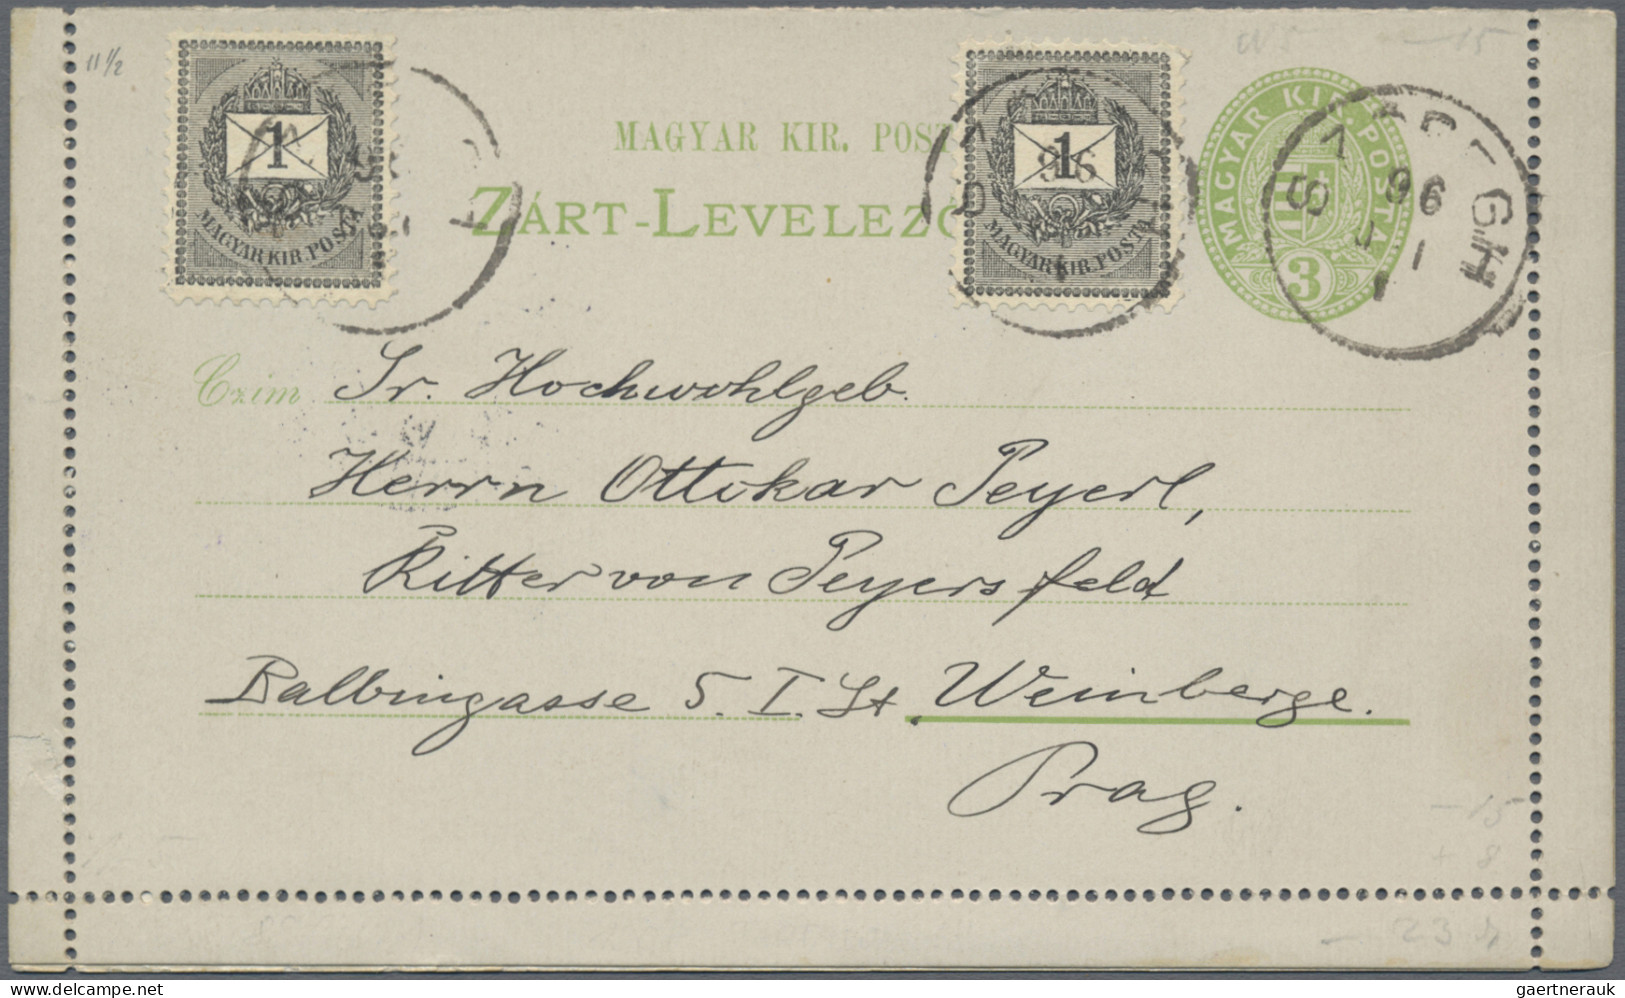 11½
MAGYAR KIR. POST
ZÁRT-LEVELEZŐ
1
MAGYAR KIR. POSTA
1
MAGYAR KIR. POSTA
96
MAGYAR KIR. POSTA
3
96
G.H
Czim Sr. Hochwohlgeb.
Herrn Ottokar Peyerl,
Ritter von Peyersfeld
Balbingasse 5. I. St. Weinberge.
Prag.
-15
-15
+ 8
- 23
gaertnerauk @ delcampe.net